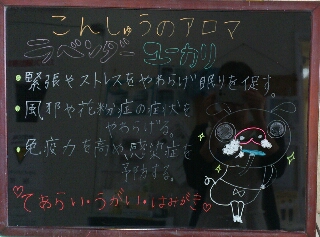 こんしゅうのアロマ
ラベンダー ユーカリ
・緊張やストレスをやわらげ眠りを促す。
・風邪や花粉症の症状を
やわらげる。
・免疫力を高め感染症を
予防する。
♡てあらい・うがい・はみがき♡